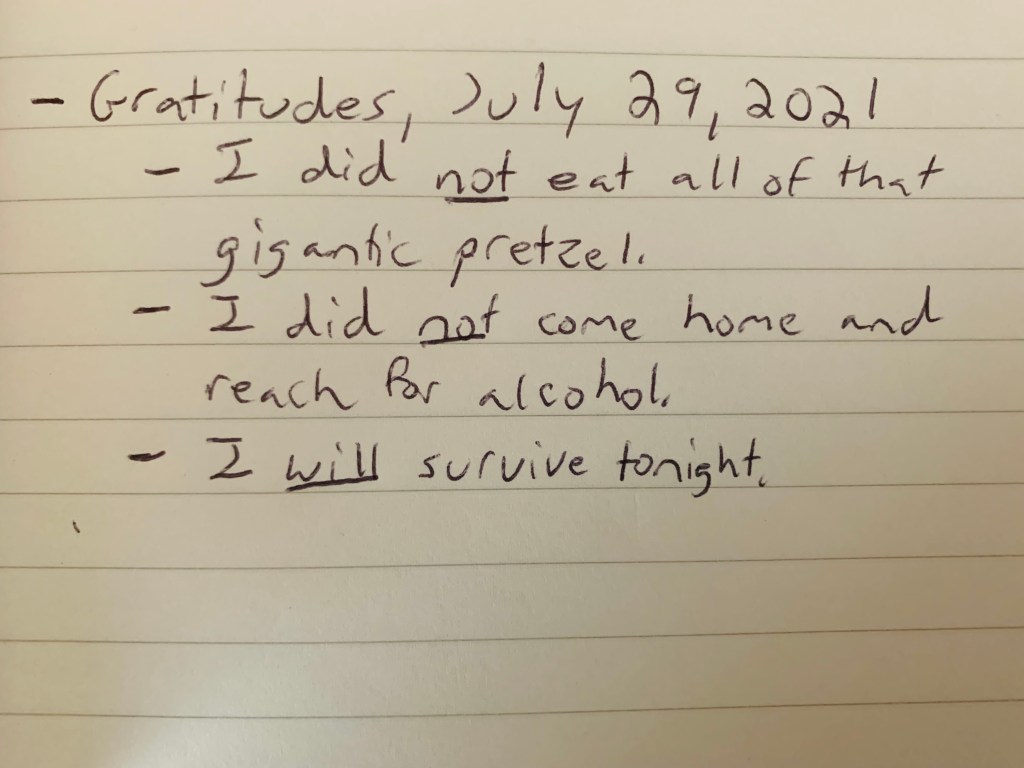 - Gratitudes, July 29, 2021
- I did not eat all of that
gigantic pretzel.
- I did not come home and
reach for alcohol.
- I will survive tonight.